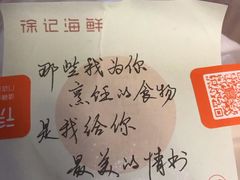 徐记海鲜
那些我为你
烹饪的食物
是我给你
最美的情书